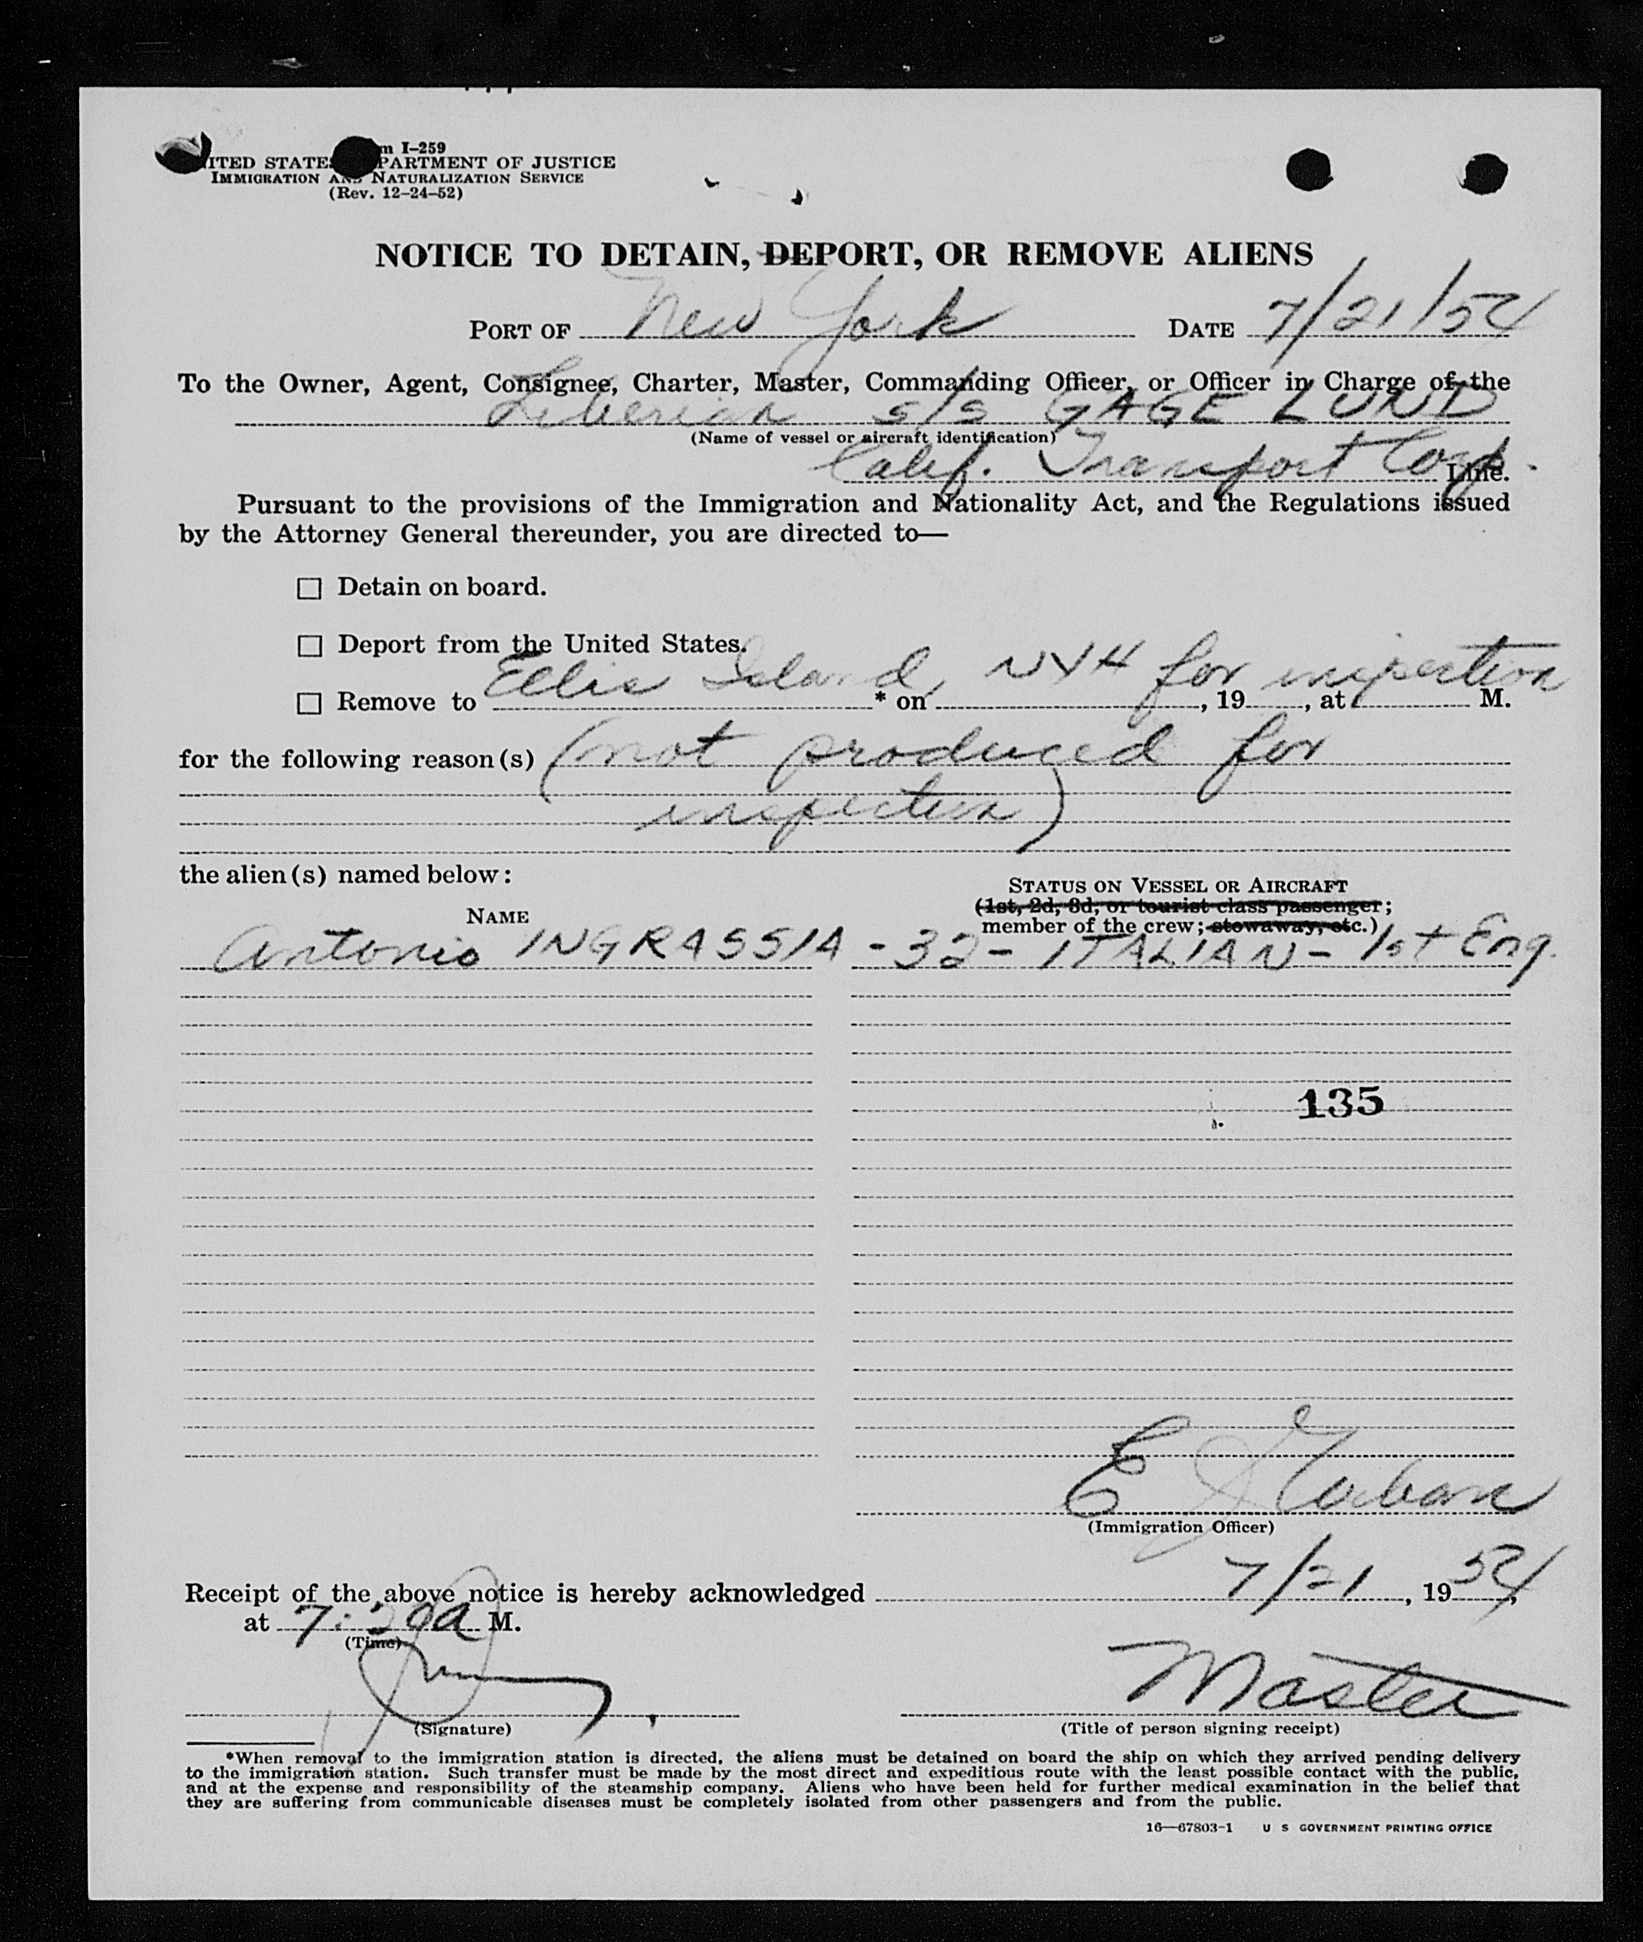 m I-259
ITED STATE PARTMENT OF JUSTICE
IMMIGRATION AND NATURALIZATION SERVICE
(Rev. 12-24-52)
NOTICE TO DETAIN, DEPORT, OR REMOVE ALIENS
PORT OF New York DATE 7/21/54
To the Owner, Agent, Consignee, Charter, Master, Commanding Officer, or Officer in Charge of the
Liberian S/S GAGE LUND
(Name of vessel or aircraft identification)
Calif. Transport Corp. Line.
Pursuant to the provisions of the Immigration and Nationality Act, and the Regulations issued
by the Attorney General thereunder, you are directed to—
☐ Detain on board.
☐ Deport from the United States.
☐ Remove to Ellis Island, NYH for inspection * on , 19 , at M.
for the following reason(s) (not produced for
inspection)
the alien(s) named below:
STATUS ON VESSEL OR AIRCRAFT
(1st, 2d, 3d, or tourist class passenger;
NAME
member of the crew; stowaway, etc.)
Antonio INGRASSIA - 32 - ITALIAN - 1st Eng.
135
E
(Immigration Officer)
Receipt of the above notice is hereby acknowledged 7/21, 1954,
at 7:20a M.
(Time)
Master
(Signature) (Title of person signing receipt)
*When removal to the immigration station is directed, the aliens must be detained on board the ship on which they arrived pending delivery
to the immigration station. Such transfer must be made by the most direct and expeditious route with the least possible contact with the public,
and at the expense and responsibility of the steamship company. Aliens who have been held for further medical examination in the belief that
they are suffering from communicable diseases must be completely isolated from other passengers and from the public.
16—67803-1 U S GOVERNMENT PRINTING OFFICE